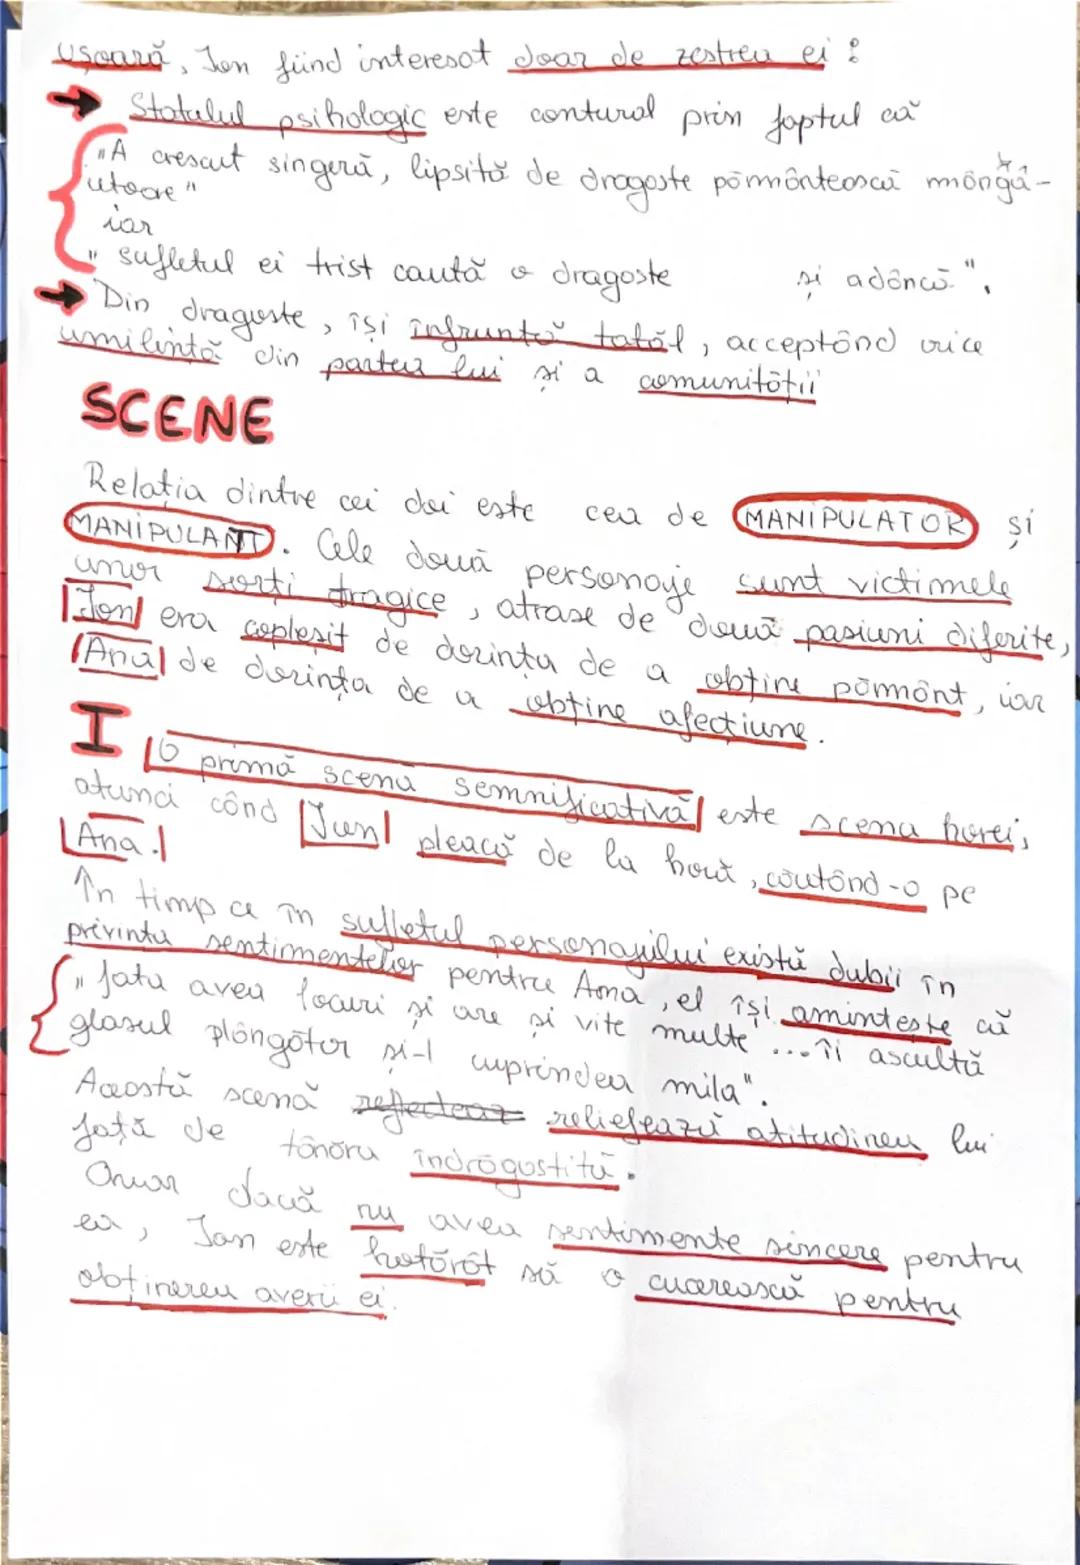 ușoară, Ion fiind interesat doar de zestrea ei :
Statutul psihologic este conturat prin faptul că
"A crescut singură, lipsită de dragoste pământească mângâ-
itoare"
iar
" sufletul ei trist caută o dragoste și adâncă".
Din dragoste, își înfruntă tatăl, acceptând orice
umilință din partea lui și a comunității
SCENE
Relația dintre cei doi este cea de MANIPULATOR și
MANIPULANT. Cele două personaje sunt victimele
unor sorți tragice, atrase de două pasiuni diferite,
Ion era copleșit de dorința de a obține pământ, iar
Ana de dorința de a obține afecțiune.
I O primă scenă semnificativă este scena horei,
atunci când Ion pleacă de la horă, căutând-o pe
Ana.
În timp ce în sufletul personajului există dubii în
privința sentimentelor pentru Ana, el își amintește că
"fata avea locuri și are și vite multe ... îi ascultă
glasul plângător și-l cuprindea mila".
Această scenă reliefează atitudinea lui
față de tânăra îndrăgostită.
Chiar dacă nu avea sentimente sincere pentru
ea, Ion este hotărât să o cucerească pentru
obținerea averii ei.